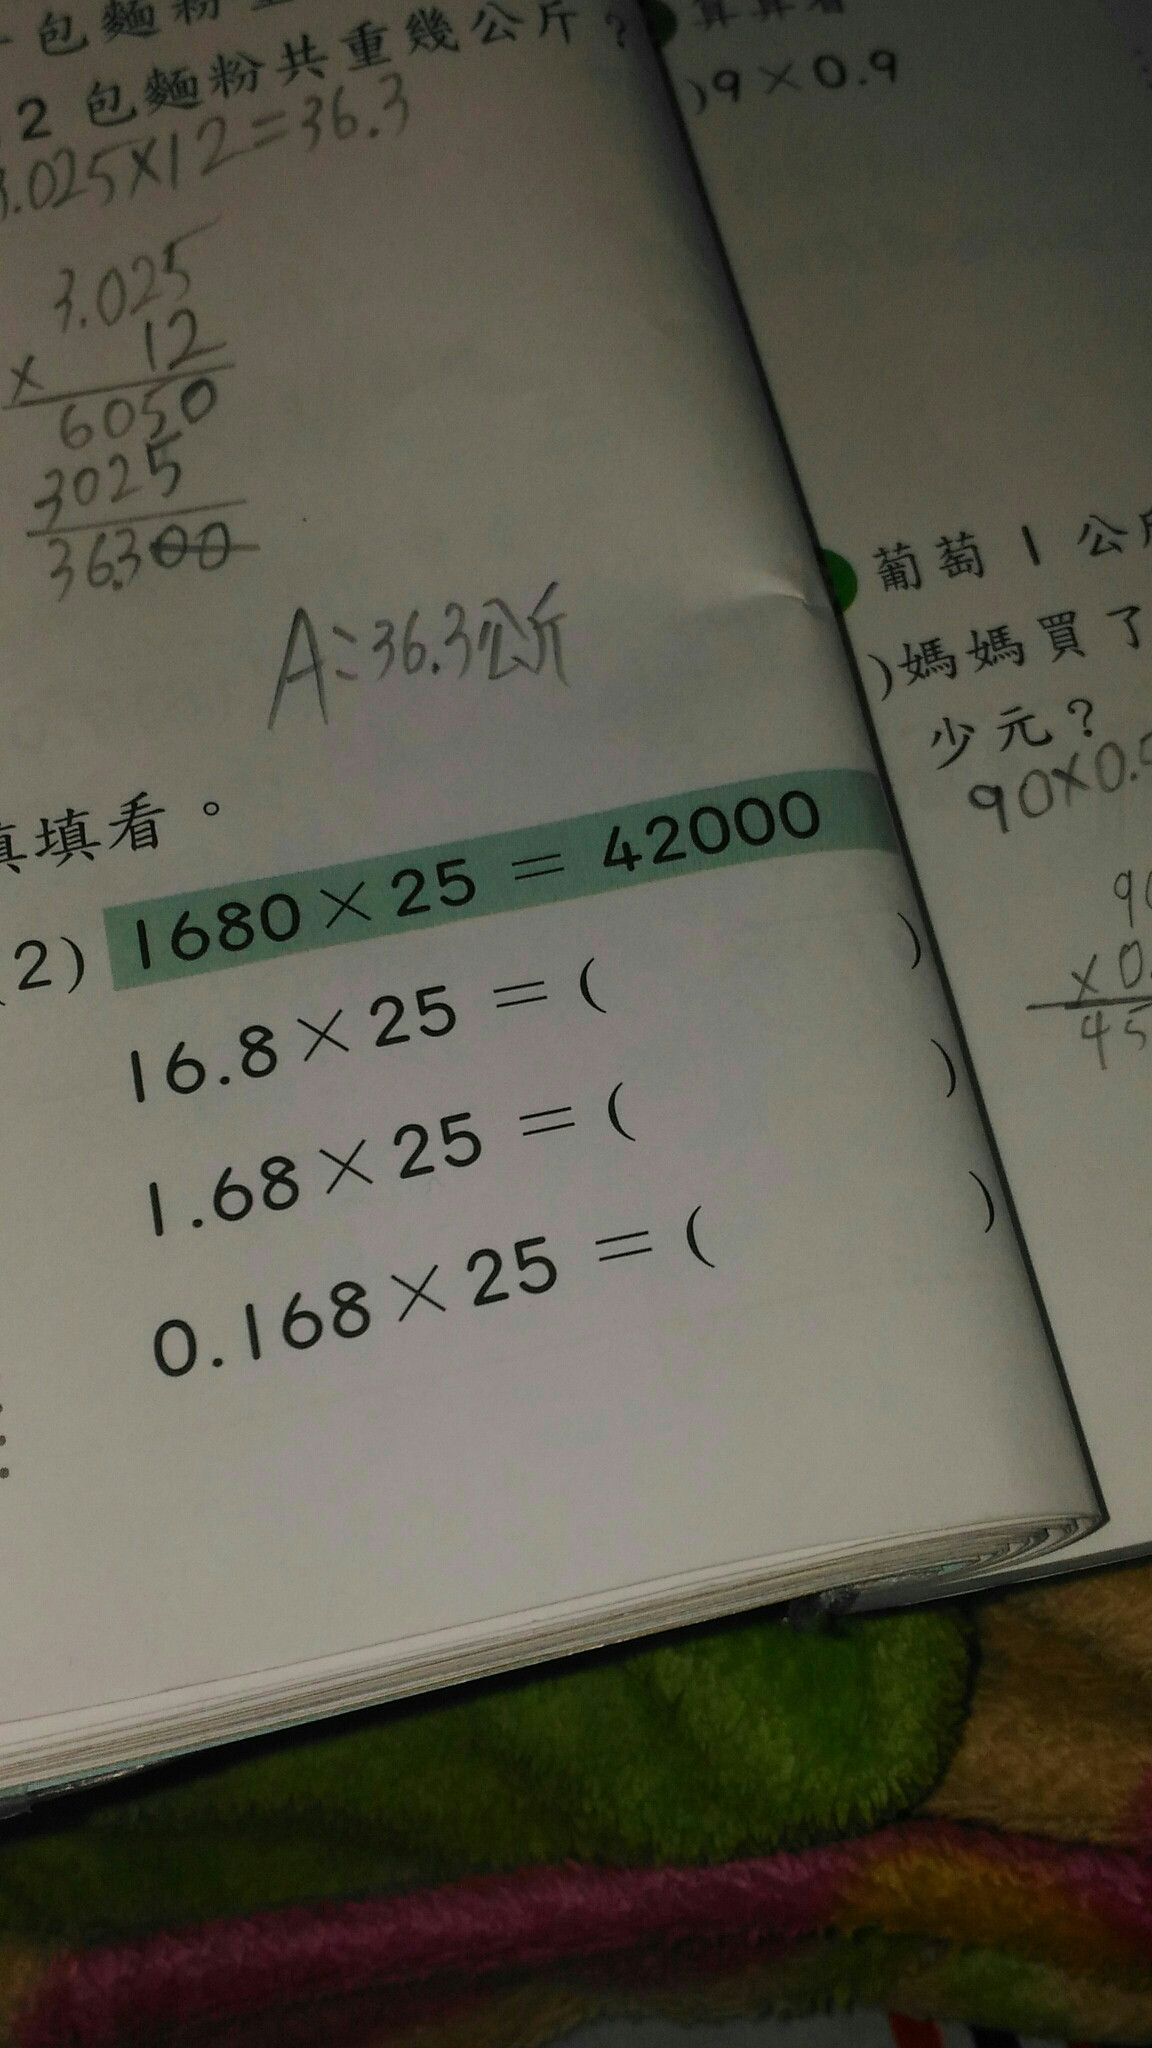 包麵粉
2 包麵粉共重幾公斤？
3.025×12=36.3
3.025
× 12
6050
3025
36.300
A:36.3公斤
填填看。
(2) 1680×25=42000
16.8×25=( )
1.68×25=( )
0.168×25=( )
算算看
)9×0.9
葡萄 1 公斤
)媽媽買了
少元？
90×0.
90
×0.
45